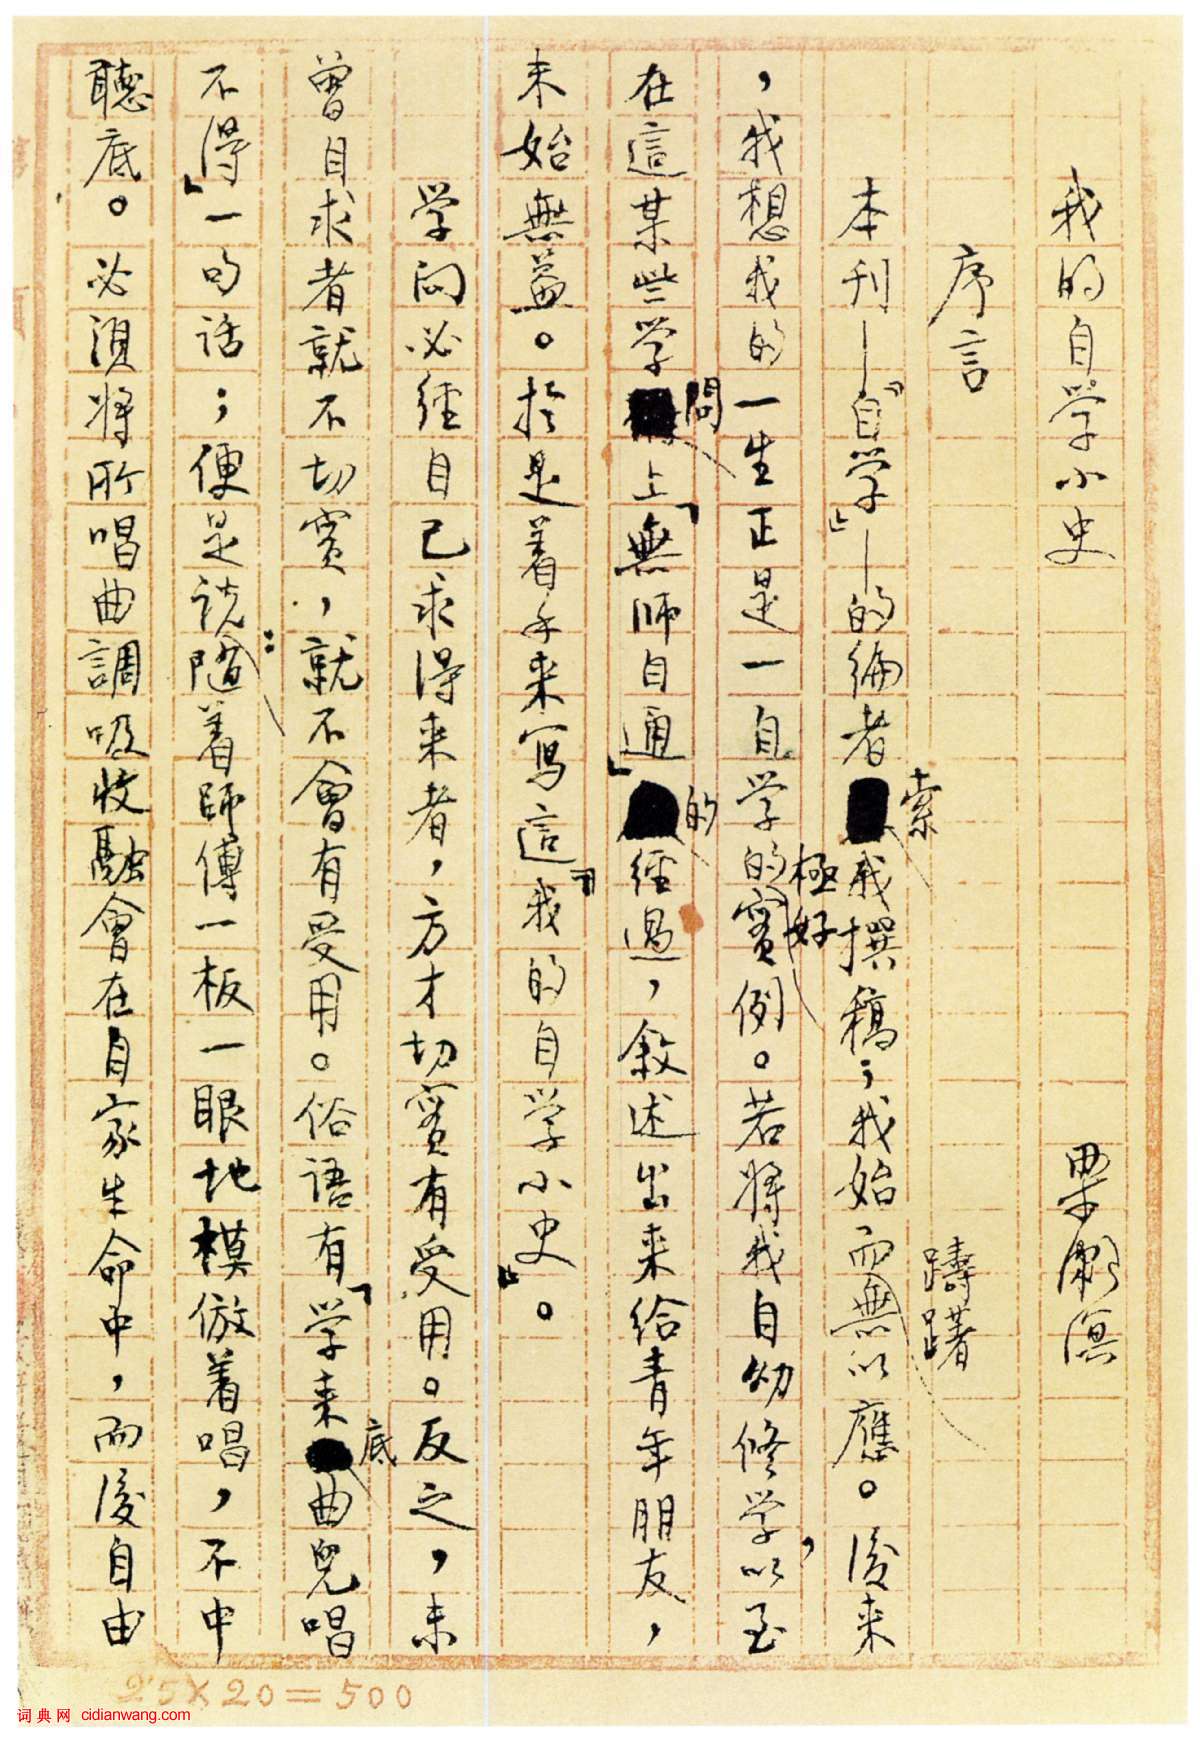 我的自学小史　　梁漱溟
序言
本刊—「自学」—的编者索我撰稿；我始而躊躇無以應。後来
，我想我的一生正是一自学的極好實例。若將我自幼修学，以至
在這某些学問上「無师自通」的經過，叙述出来给青年朋友，
未始無益。於是着手来寫這『我的自学小史』。
学问必經自己求得来者，方才切實有受用。反之，未
曾自求者就不切實，就不會有受用。俗语有「学来底曲兒唱
不得」一句话；便是说：隨着师傅一板一眼地模倣着唱，不中
聽底。必須将所唱曲調吸收融會在自家生命中，而後自由
25×20=500
词典网 cidianwang.com